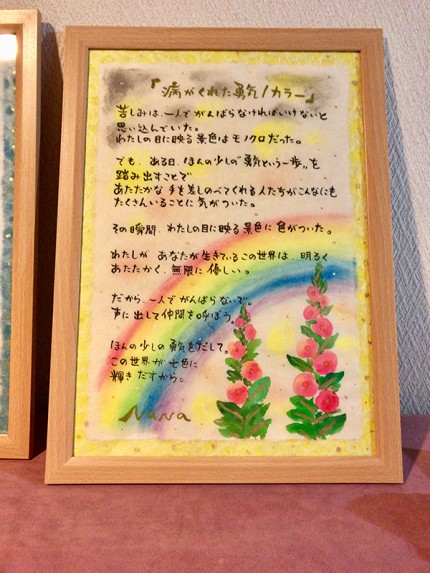 『病がくれた勇気/カラー』
苦しみは、一人で がんばらなければいけないと
思い込んでいた。
わたしの目に映る景色はモノクロだった。
でも、ある日、ほんの少しの"勇気という一歩"を
踏み出すことで
あたたかな 手を差しのべてくれる人たちがこんなにも
たくさんいることに 気がついた。
その瞬間、わたしの目に映る景色に 色がついた。
わたしが あなたが生きているこの世界は 明るく
あたたかく、無限に 優しい。
だから、一人で がんばらないで。
声に出して仲間を呼ぼう。
ほんの少しの 勇気をだして、
この世界が 七色に
輝き だすから。
NaNa